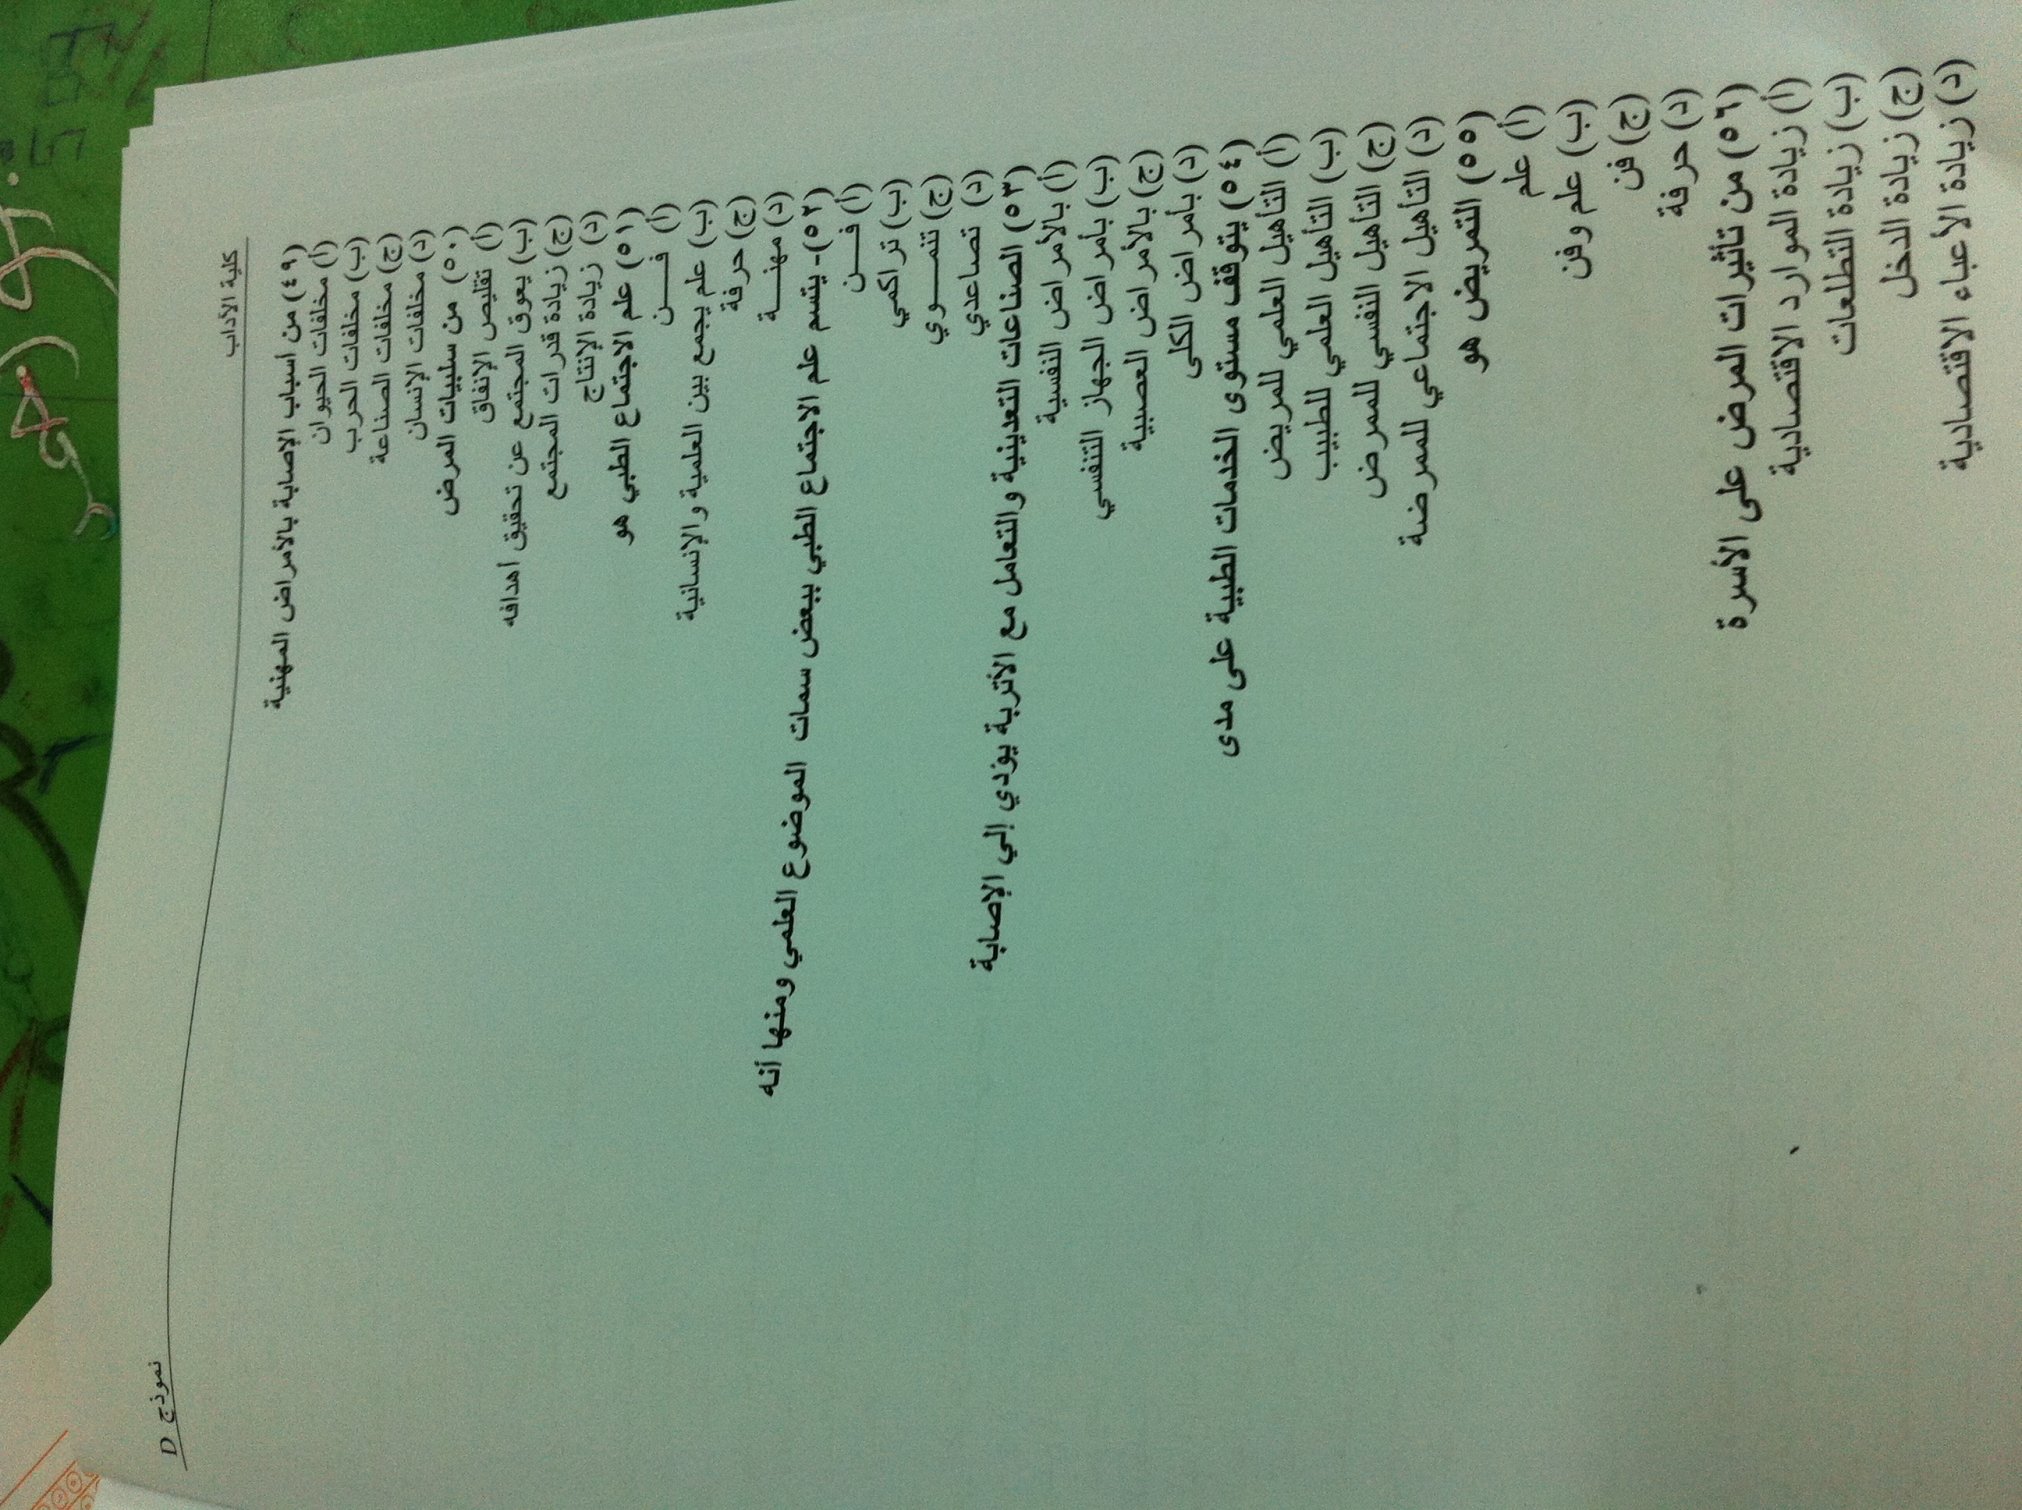 كلية الآداب
نموذج D
(٤٩) من أسباب الإصابة بالأمراض المهنية
(أ) مخلفات الحيوان
(ب) مخلفات الحرب
(ج) مخلفات الصناعة
(د) مخلفات الإنسان
(٥٠) من سلبيات المرض
(أ) تقليص الإنفاق
(ب) يعوق المجتمع عن تحقيق أهدافه
(ج) زيادة قدرات المجتمع
(د) زيادة الإنتاج
(٥١) علم الاجتماع الطبي هو
(أ) فـــن
(ب) علم يجمع بين العلمية والإنسانية
(ج) حرفة
(د) مهنـــة
(٥٢)- يتسم علم الاجتماع الطبي ببعض سمات الموضوع العلمي ومنها أنه
(أ) فـــن
(ب) تراكمي
(ج) تنمـــوي
(د) تصاعدي
(٥٣) الصناعات التعدينية والتعامل مع الأتربة يؤدي إلي الإصابة
(أ) بالأمراض النفسية
(ب) بأمراض الجهاز التنفسي
(ج) بالأمراض العصبية
(د) بأمراض الكلى
(٥٤) يتوقف مستوى الخدمات الطبية على مدى
(أ) التأهيل العلمي للمريض
(ب) التأهيل العلمي للطبيب
(ج) التأهيل النفسي للممرض
(د) التأهيل الاجتماعي للممرضة
(٥٥) التمريض هو
(أ) علم
(ب) علم وفن
(ج) فن
(د) حرفة
(٥٦) من تأثيرات المرض على الأسرة
(أ) زيادة الموارد الاقتصادية
(ب) زيادة التطلعات
(ج) زيادة الدخل
(د) زيادة الأعباء الاقتصادية